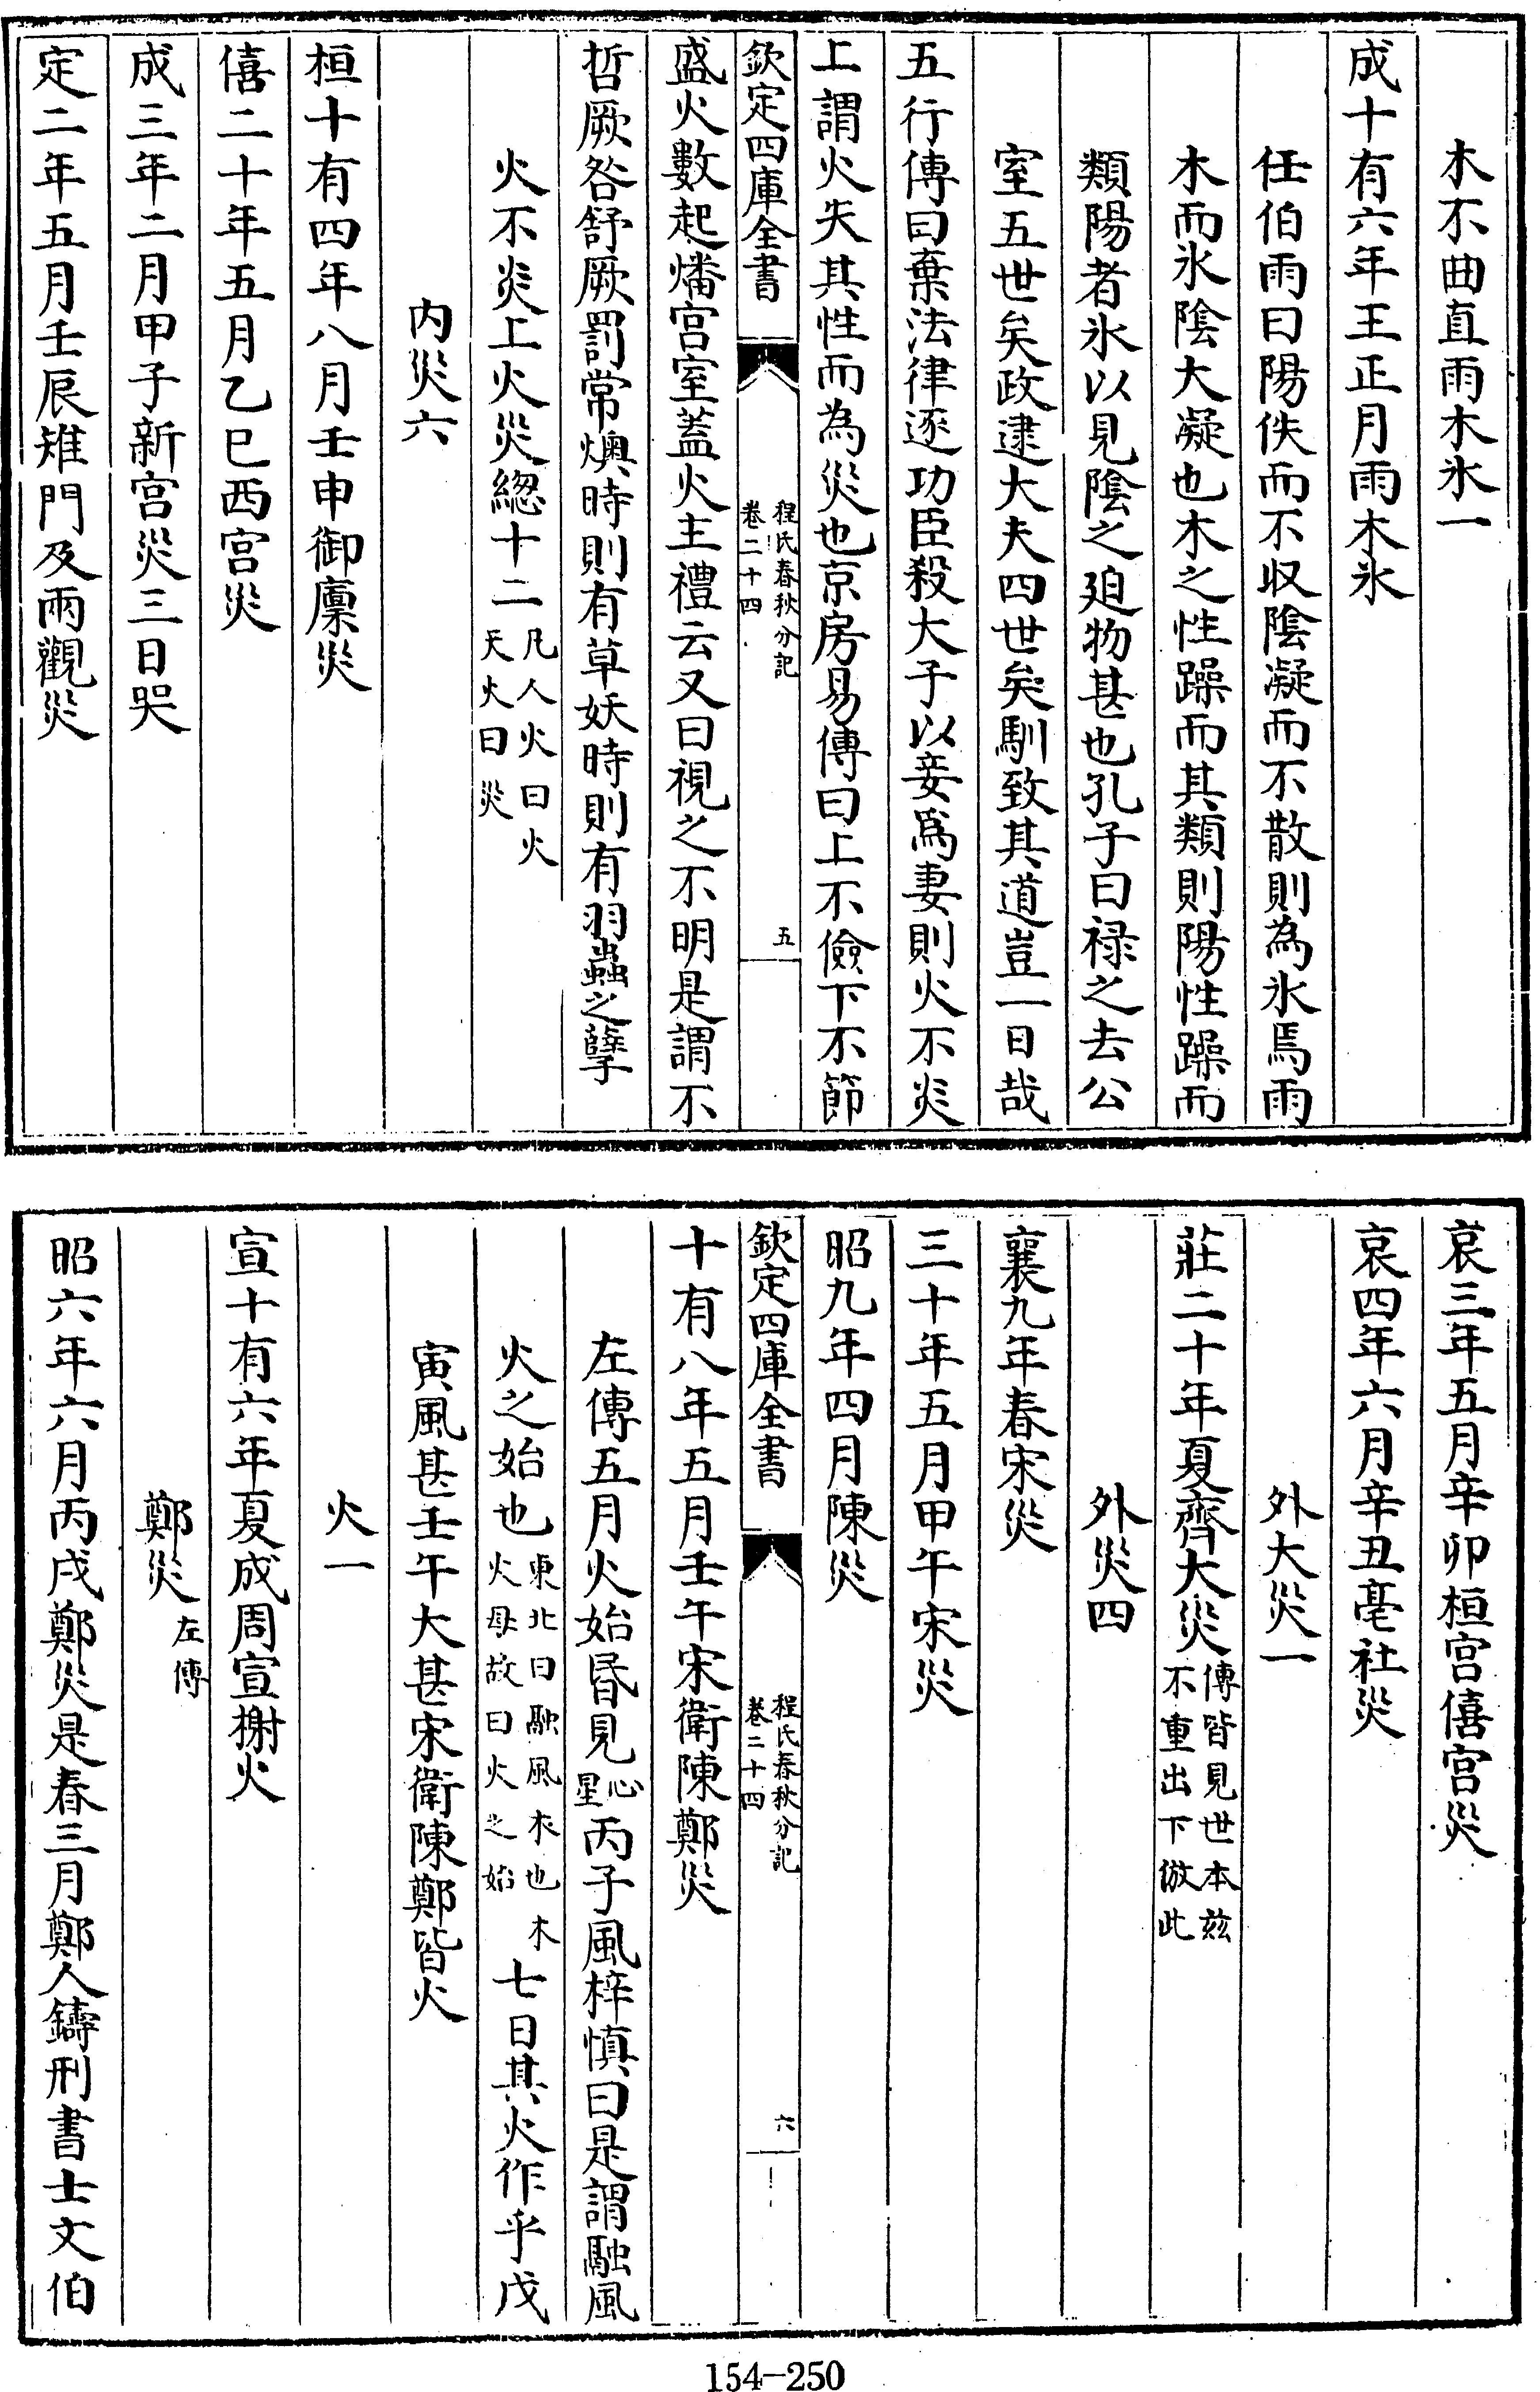 木不曲直雨木氷一
成十有六年王正月雨木氷
任伯雨曰陽佚而不収陰凝而不散則為氷焉雨
木而氷陰大凝也木之性躁而其類則陽性躁而
類陽者氷以見陰之廹物甚也孔子曰禄之去公
室五世矣政逮大夫四世矣馴致其道豈一日哉
五行傳曰棄法律逐功臣殺大子以妾爲妻則火不炎
上謂火失其性而為災也京房易傳曰上不儉下不節
欽定四庫全書
程氏春秋分記
卷二十四
五
盛火數起燔宫室蓋火主禮云又曰視之不明是謂不
哲厥咎舒厥罰常燠時則有草妖時則有羽蟲之孽
火不炎上火災緫十二凡人火曰火天火曰災
内災六
桓十有四年八月壬申御廩災
僖二十年五月乙巳西宫災
成三年二月甲子新宫災三日哭
定二年五月壬辰雉門及兩觀災
哀三年五月辛卯桓宫僖宫災
哀四年六月辛丑亳社災
外大災一
莊二十年夏齊大災傳皆見世本兹不重出下倣此
外災四
襄九年春宋災
三十年五月甲午宋災
昭九年四月陳災
欽定四庫全書
程氏春秋分記
卷二十四
六
十有八年五月壬午宋衛陳鄭災
左傳五月火始昬見心星丙子風梓慎曰是謂融風
火之始也東北曰融風木也木火母故曰火之始七日其火作乎戊
寅風甚壬午大甚宋衛陳鄭皆火
火一
宣十有六年夏成周宣榭火
鄭災左傳
昭六年六月丙戌鄭災是春三月鄭人鑄刑書士文伯
154-250